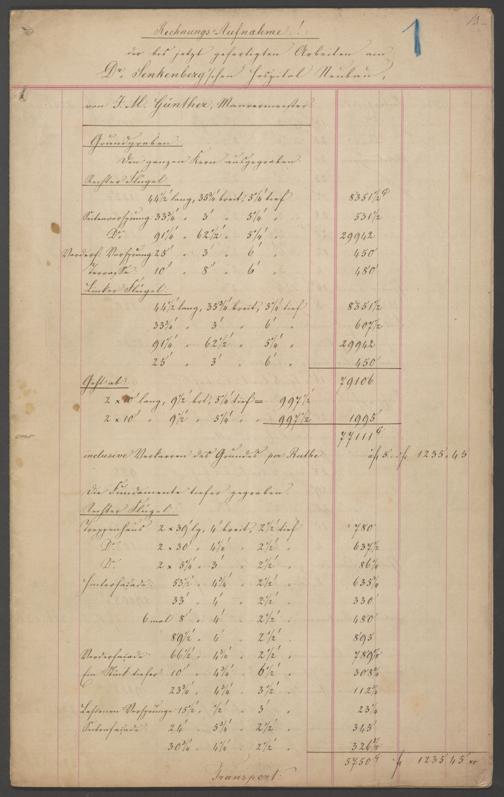 1
Rechnungs-Aufnahme!
der bis jetzt gefertigten Arbeiten am
Dr. Senkenberg'schen Hospital Neubau,
von J. M. Günther, Maurermeister
Grundgraben
Den ganzen Kern ausgegraben
Rechter Flügel
44½' lang, 35¾' breit, 5¼' tief 8351½
Seitenvorsprung 33¾' " 3' " 5¼' " 531½
Do. 91¼' " 62½' " 5¼' " 29942
Vorderf. Vorsprung 25' " 3' " 6' " 450
Terrasse 10' " 8' " 6' " 480
Linker Flügel
44½' lang, 35¾' breit, 5¼' tief 8351½
33¾' " 3' " 6' " 607½
91¼' " 62½' " 5¼' " 29942
25' " 3' " 6' " 450
Geht ab: 79106
lang, 9½' brt, 5¼' tief = 997½
2 x 10' " 9½' " 5¼' " " 997½ 1995
77111
inclusive des Grundes per Ruthe 1235.45
Die Fundamente tiefer gegraben
Rechter Flügel
Treppenhaus 2 x 39' lg, 4' breit, 2½' tief 780
Do. 2 x 30' " 4¼' " 2½' " 637½
Do. 2 x 5¾' " 3' " 2½' " 86¼
Hinterfaçade 53½' " 4¾' " 2½' " 635¼
33' " 4' " 2½' " 330
6 mal 8' " 4' " 2½' " 480
89½' " 4' " 2½' " 895
Vorderfaçade 66½' " 4¾' " 2½' "
Ein Stück tiefer 10' " 4¾' " 6½' " 308¾
23¾' " 4¾' " 3½' "
Vorsprünge 15½' " ½' " 3' " 23¼
Seitenfaçade 24' " 5¾' " 2½' " 345
30¾' " 4¼' " 2½' "
5750 1235.45
Transport: